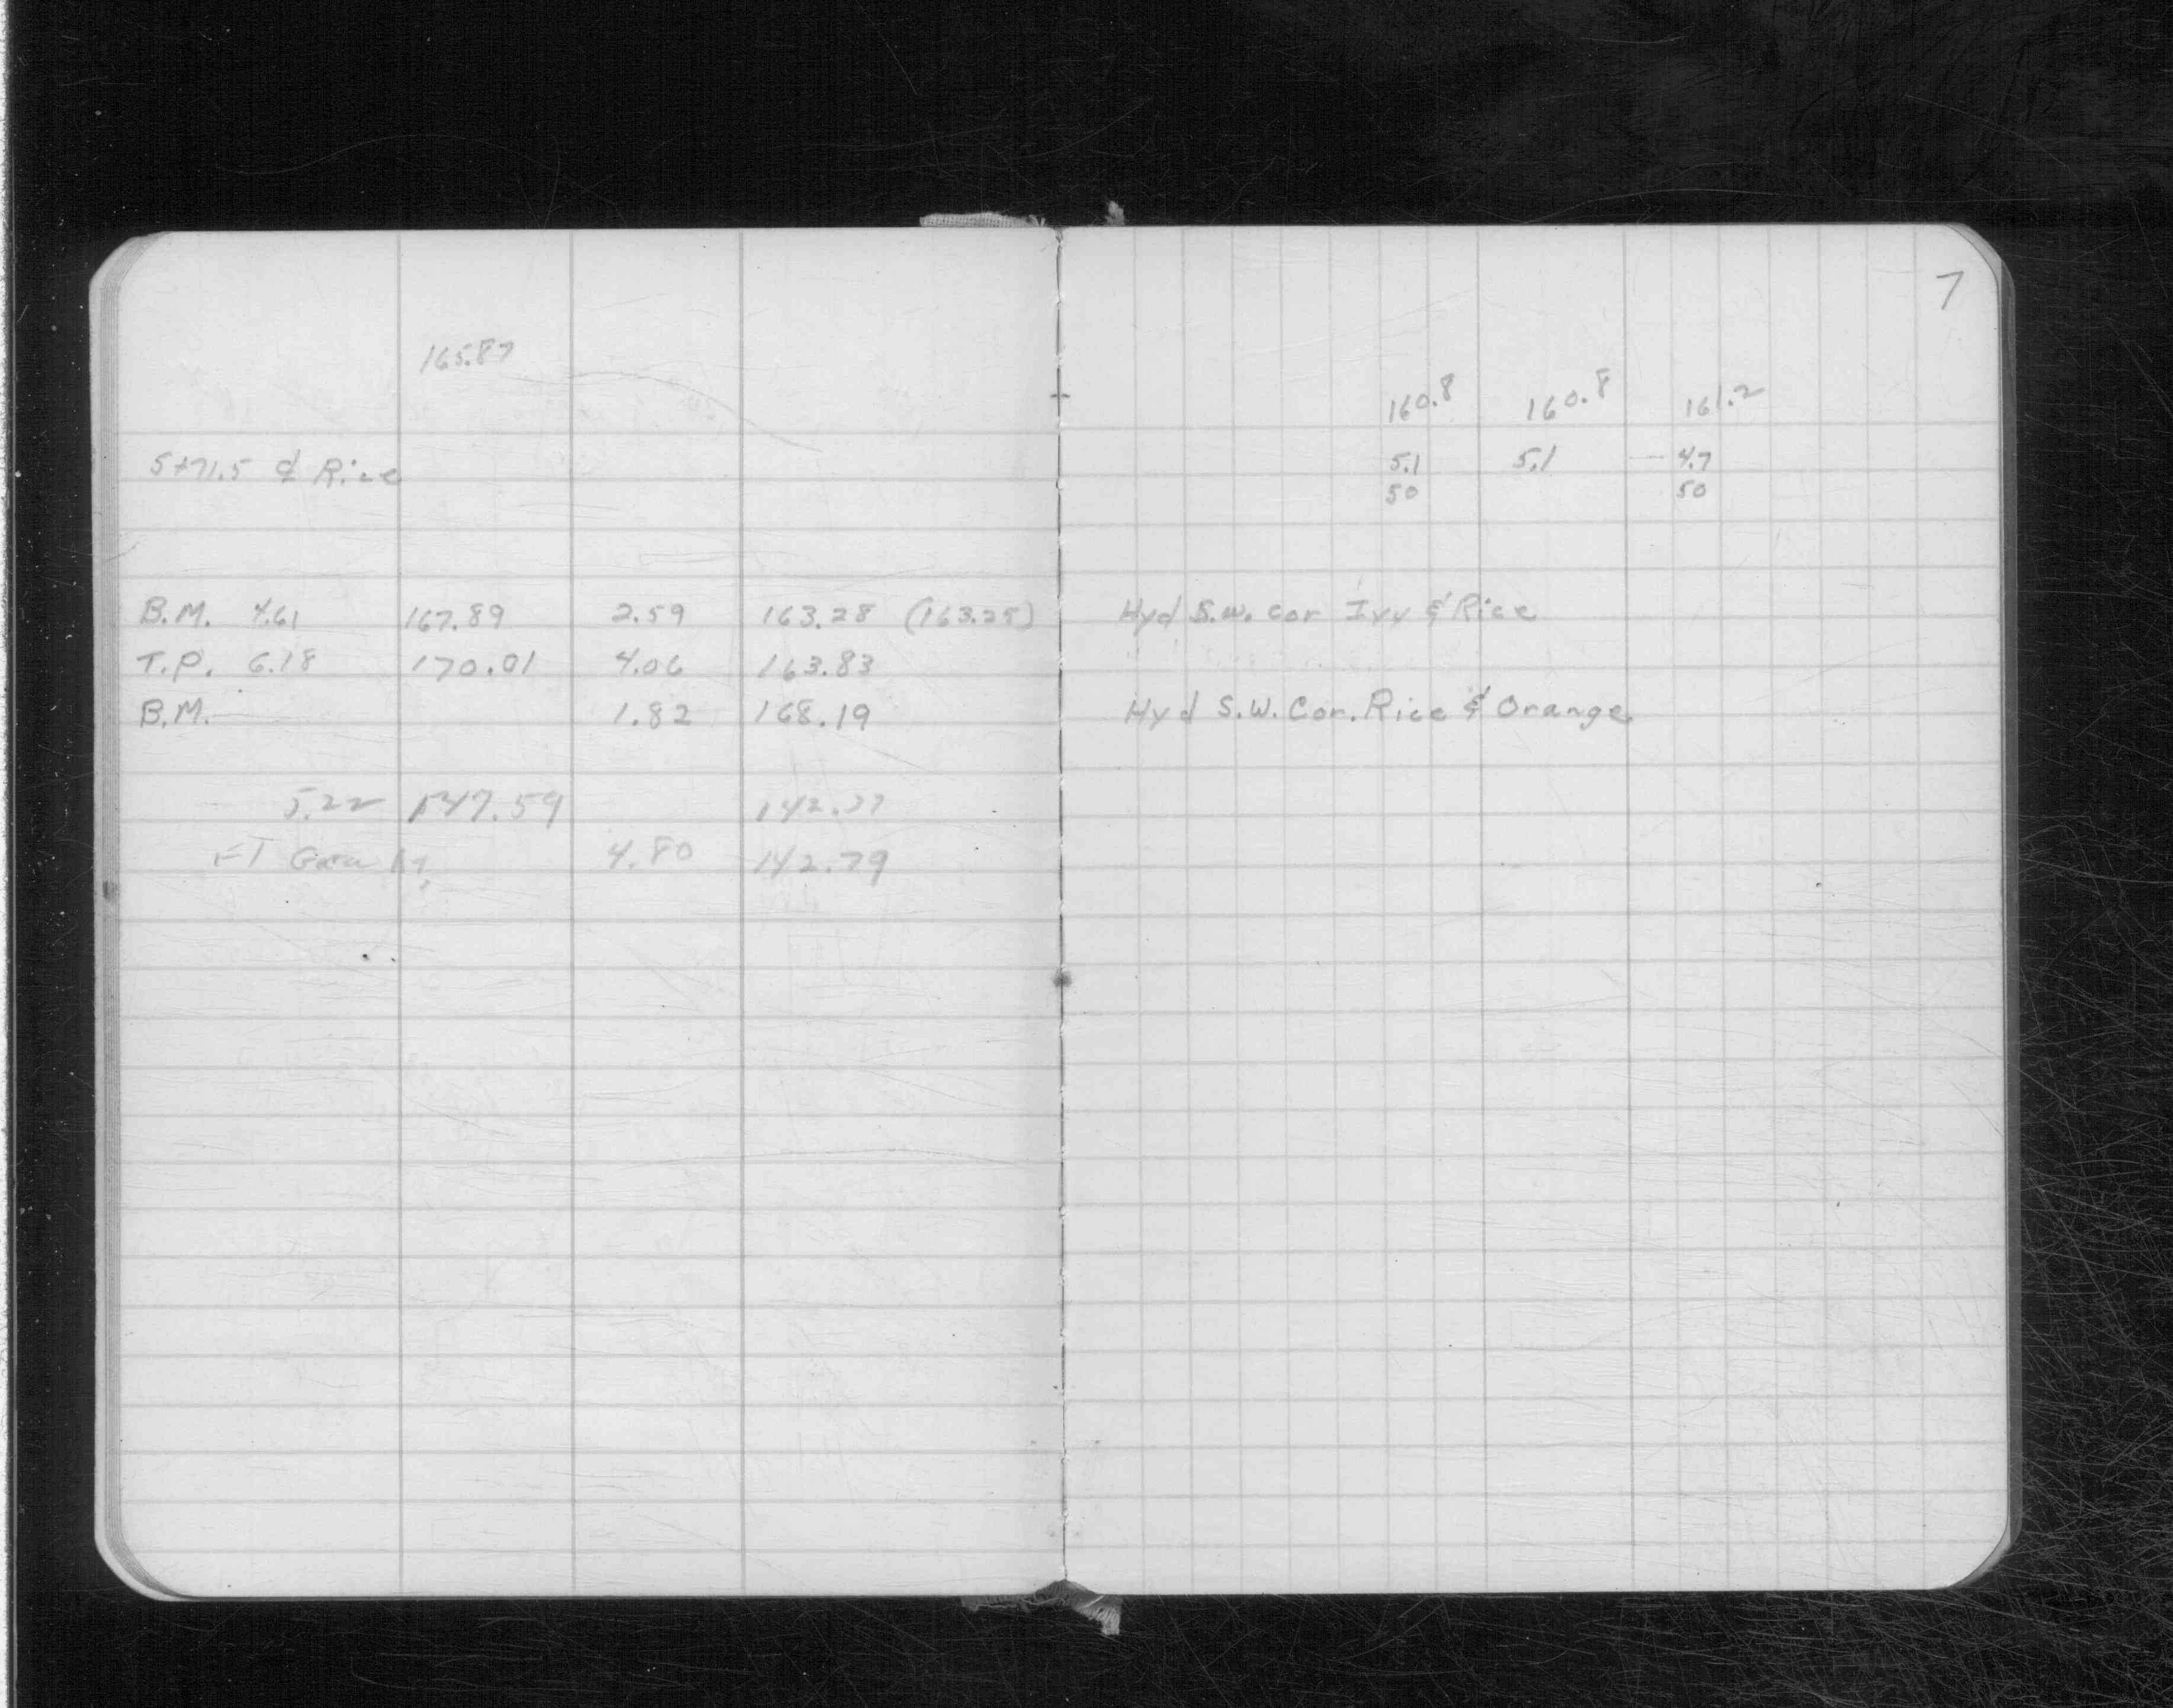 7
165.87
160.8 160.8 161.2
5+71.5 ₵ Rice 5.1 5.1 4.7
50 50
B.M. 4.61 167.89 2.59 163.28 (163.25) Hyd S.W. cor Ivy & Rice
T.P. 6.18 170.01 4.06 163.83
B.M. 1.82 168.19 Hyd S.W. Cor. Rice & Orange
5.22 147.59 142.37
4.80 142.79